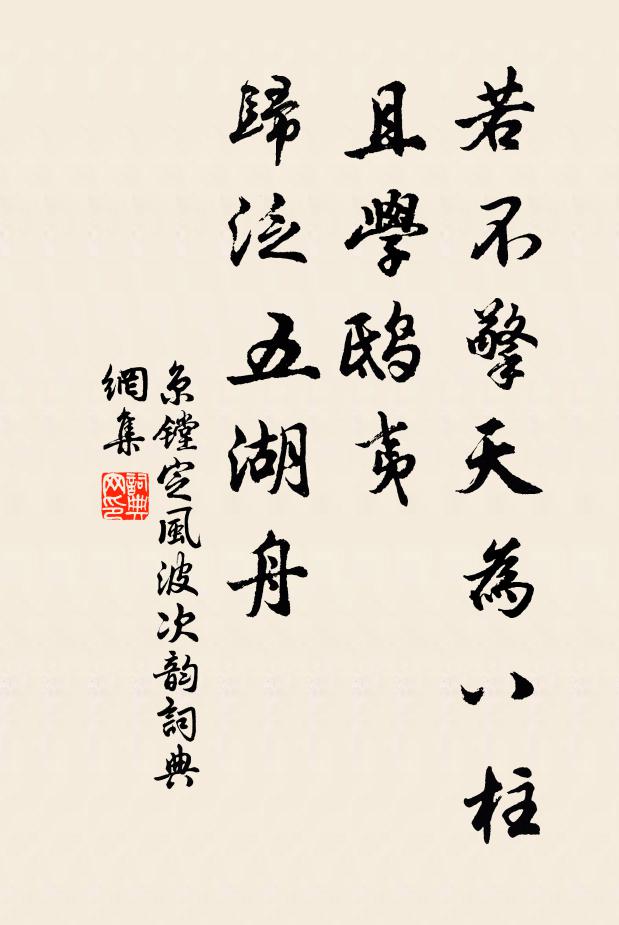 若不擎天為八柱
且學鴟夷
歸泛五湖舟
京鏜定風波次韵詞典
網集
詞典网印